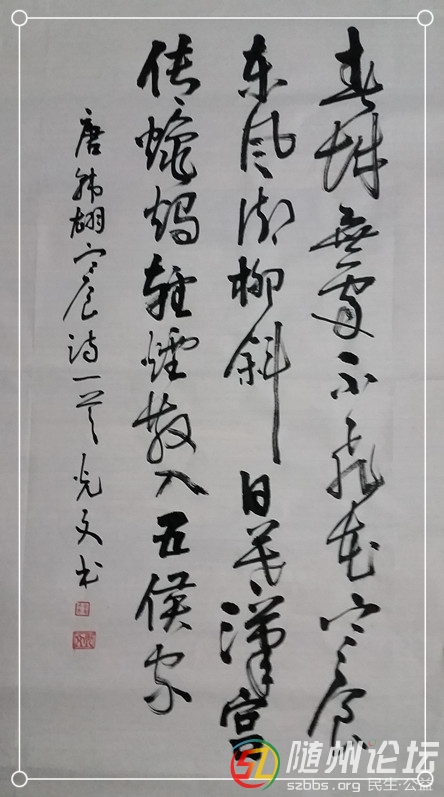 春城無處不飛花寒食
东风御柳斜日暮漢宫
传蠟燭轻煙散入五侯家
唐韩翃寒食诗一首 光文书
随州论坛
szbbs.org 民生·公益